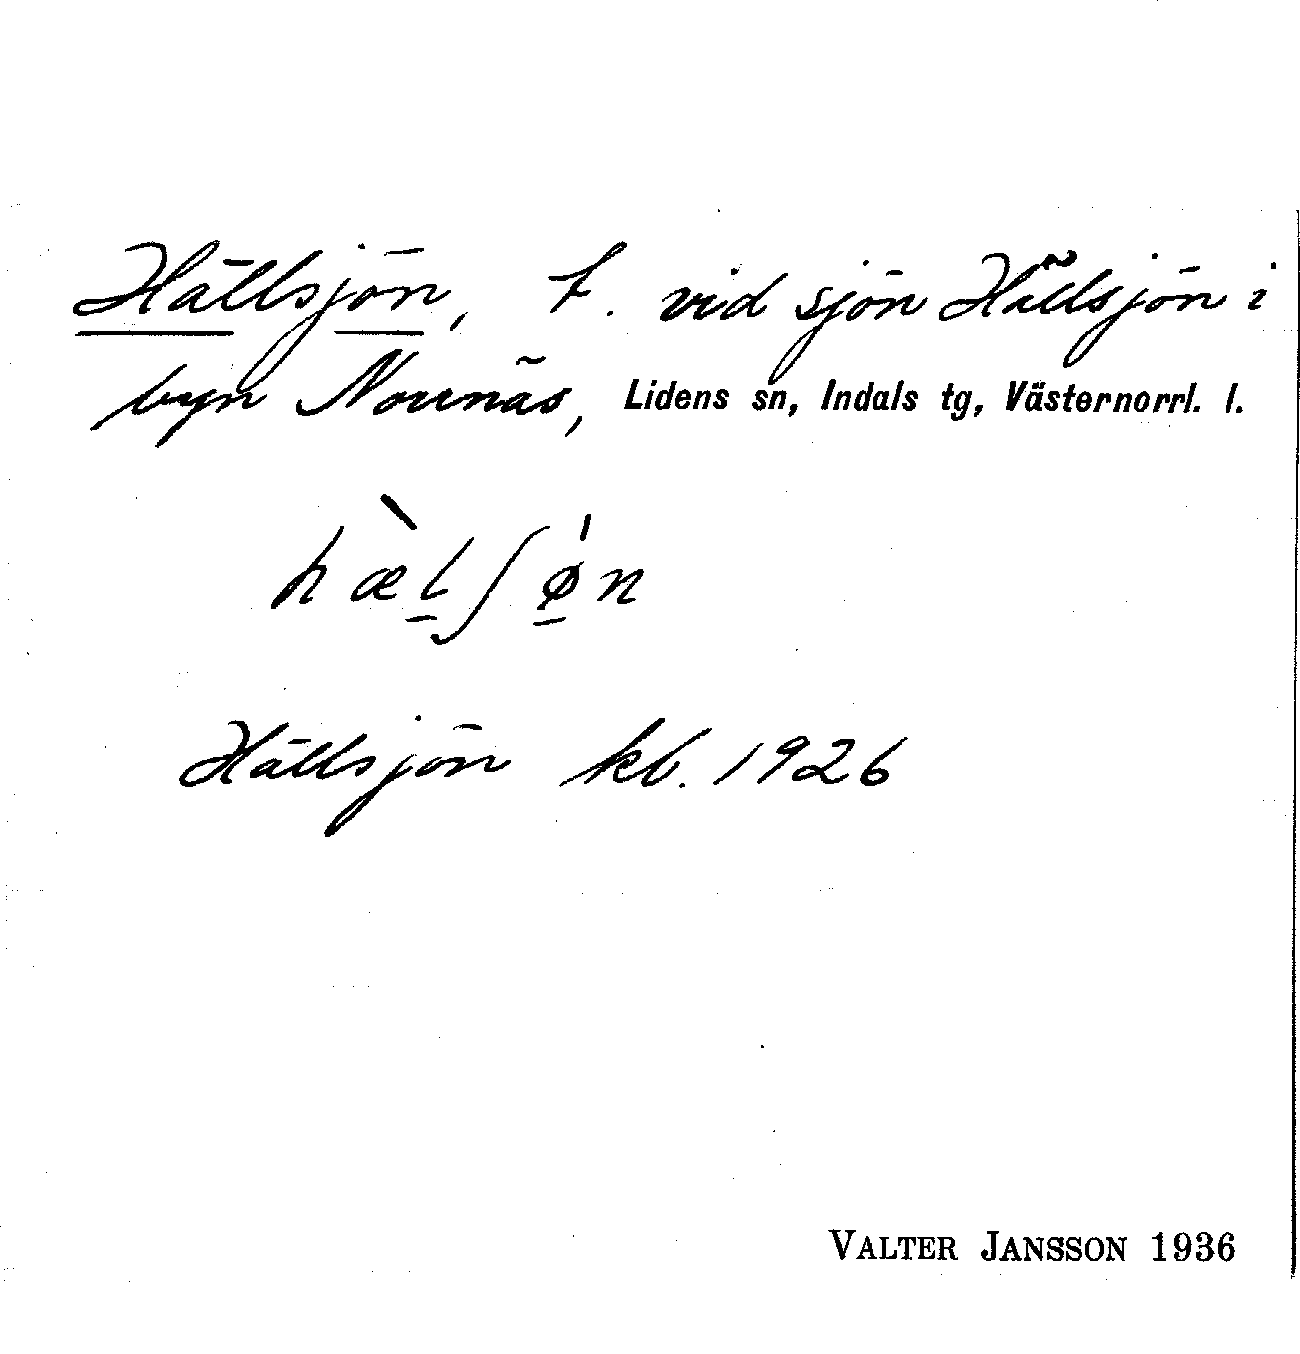 Hällsjön, t. vid sjön Hällsjön i
byn Norrnäs, Lidens sn, Indals tg, Västernorrl. l.
hæ̀lʃø̍n
Hällsjön kb. 1926
VALTER JANSSON 1936